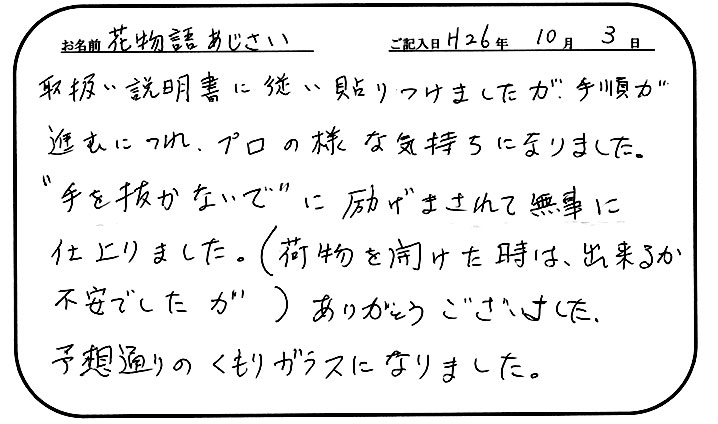 お名前 花物語あじさい ご記入日 H26年 10月 3日
取扱い説明書に従い貼りつけましたが、手順が
進むにつれ、プロの様な気持ちになりました。
"手を抜かないで"に励げまされて無事に
仕上りました。(荷物を開けた時は、出来るか
不安でしたが) ありがとうございました、
予想通りのくもりガラスになりました。